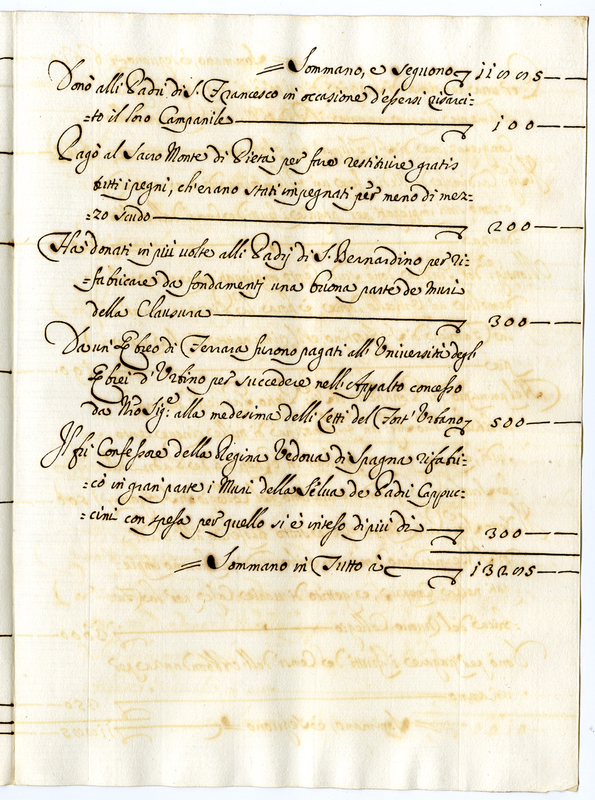 = Sommano, e seguono 11885
Donò alli Padri di S. Francesco in occasione d'essersi risarci=
=to il loro Campanile 100
Pagò al Sacro Monte di Pietà per fare restituire gratis
tutti i pegni, ch'erano stati impegnati per meno di mez=
=zo scudo 200
Ha' donati in più volte alli Padri di S. Bernardino per ri=
=fabricare da fondamenti una buona parte de Muri
della Clausura 300
Da un' Ebreo di Ferrara furono pagati all' Università degli
Ebrei d'Urbino per succedere nell'Appalto concesso
da N'ro Sig.e alla medesima delli Letti del Fort' Urbano 500
Il fù Confessore della Regina Vedova di Spagna rifabri=
=cò in gran parte i Muri della Selva de Padri Cappuc=
=cini con spesa per quello si è inteso di più di 300
= Sommano in Tutto à 13285